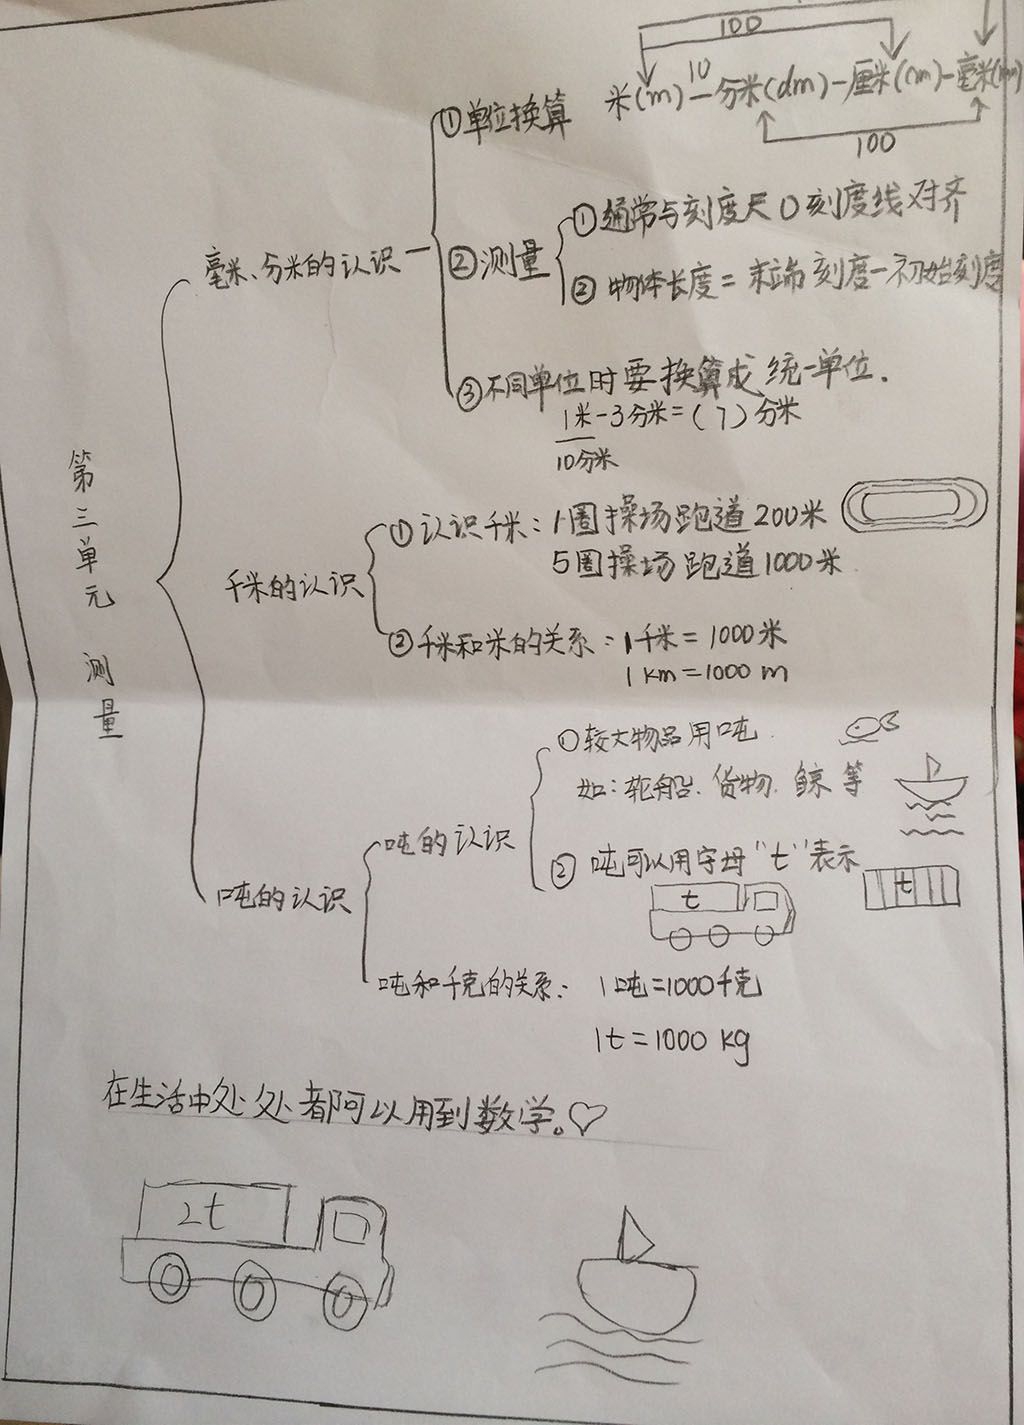 100
10
米(m)—分米(dm)—厘米(cm)—毫米(mm)
100
①单位换算
①通常与刻度尺0刻度线对齐
毫米、分米的认识
②测量
②物体长度=末端刻度—初始刻度
③不同单位时要换算成统一单位.
1米-3分米=(7)分米
10分米
第三单元 测量
①认识千米:1圈操场跑道200米
5圈操场跑道1000米
千米的认识
②千米和米的关系:1千米=1000米
1km=1000m
①较大物品用吨.
如:轮船、货物、鲸等
吨的认识
②吨可以用字母"t"表示
t
t
吨的认识
吨和千克的关系: 1吨=1000千克
1t=1000kg
在生活中处处都可以用到数学。♡
2t